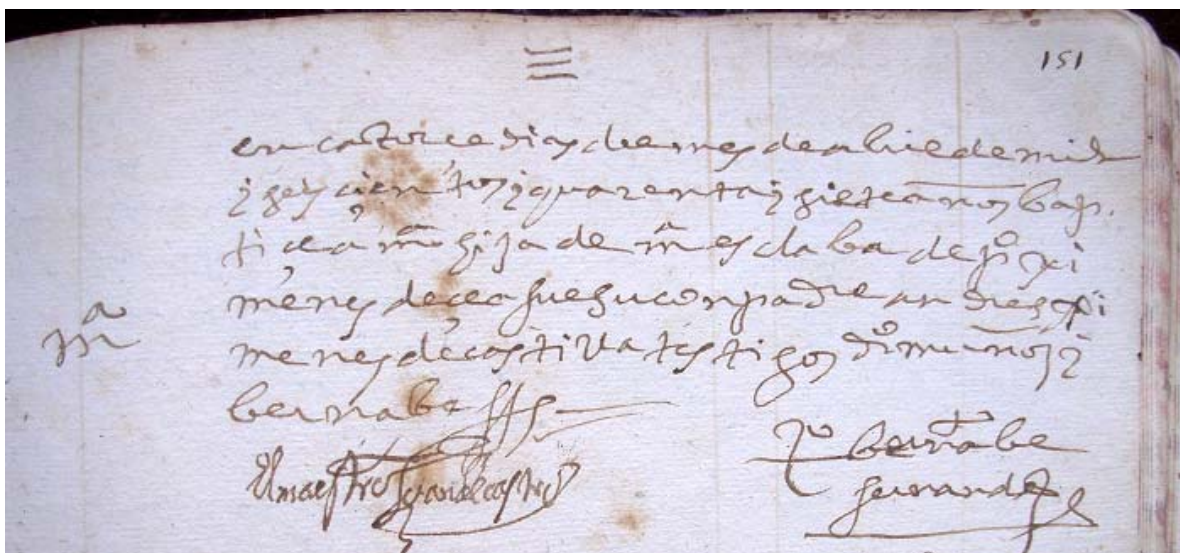 151
en catorce dias del mes de abril de mil
y seys cientos y quarenta y siete años bap
tice a mᵃ hija de mᵃ esclaba de jᵒ xi
menes de cea fue su conpadre andres xi
menes de castilla testigos dᵒ muñoz y
mᵃ
bernabe
El maestro Juan de castro
bernabe
hernandez